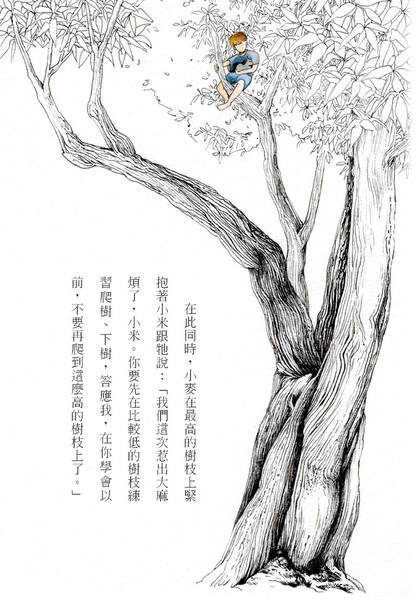 在此同時，小麥在最高的樹枝上緊
抱著小米跟牠說：「我們這次惹出大麻
煩了，小米。你要先在比較低的樹枝練
習爬樹、下樹，答應我，在你學會以
前，不要再爬到這麼高的樹枝上了。」